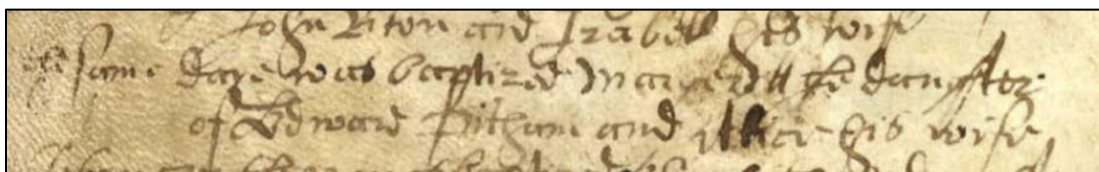 John Riton and Izabell his wife
the same daye was baptized Margerit the daughter
of Edward Pitham and Alice his wife